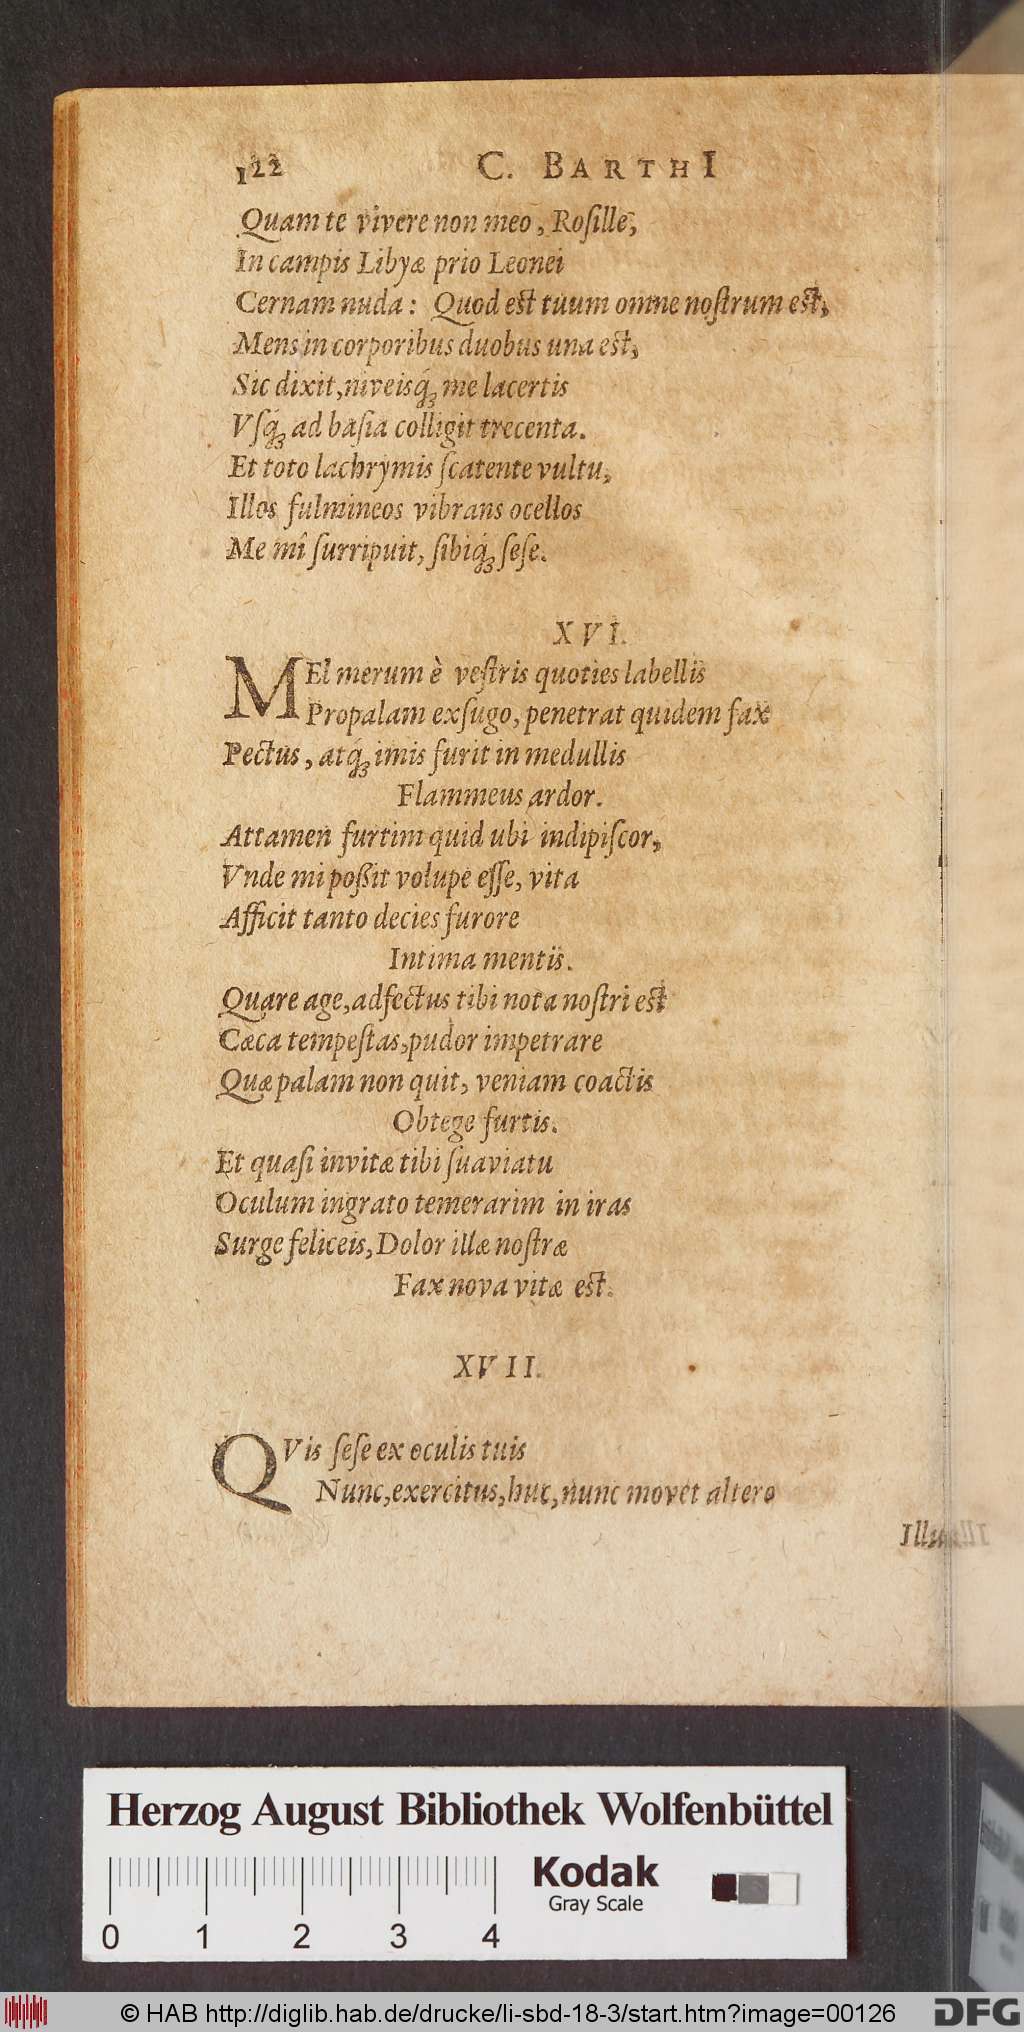 122 C. BARTHI
Quam te vivere non meo, Rosille,
In campis Libyæ prio Leonei
Cernam nuda: Quod est tuum omne nostrum est,
Mens in corporibus duobus una est,
Sic dixit, niveisq́; me lacertis
Vsq́; ad basia colligit trecenta.
Et toto lachrymis scatente vultu,
Illos fulmineos vibrans ocellos
Me mî surripuit, sibiq́; sese.
XVI.
MEl merum è vestris quoties labellis
Propalam exsugo, penetrat quidem fax
Pectus, atq́; imis furit in medullis
Flammeus ardor.
Attamen furtim quid ubi indipiscor,
Vnde mi poßit volupe esse, vita
Afficit tanto decies furore
Intima mentis.
Quare age, adfectus tibi nota nostri est
Cæca tempestas, pudor impetrare
Quæ palam non quit, veniam coactis
Obtege furtis.
Et quasi invitæ tibi suaviatu
Oculum ingrato temerarim in iras
Surge feliceis, Dolor illæ nostræ
Fax nova vitæ est.
XVII.
QVis sese ex oculis tuis
Nunc, exercitus, huc, nunc movet altero
Herzog August Bibliothek Wolfenbüttel
Kodak
Gray Scale
0 1 2 3 4
© HAB http://diglib.hab.de/drucke/li-sbd-18-3/start.htm?image=00126 DFG